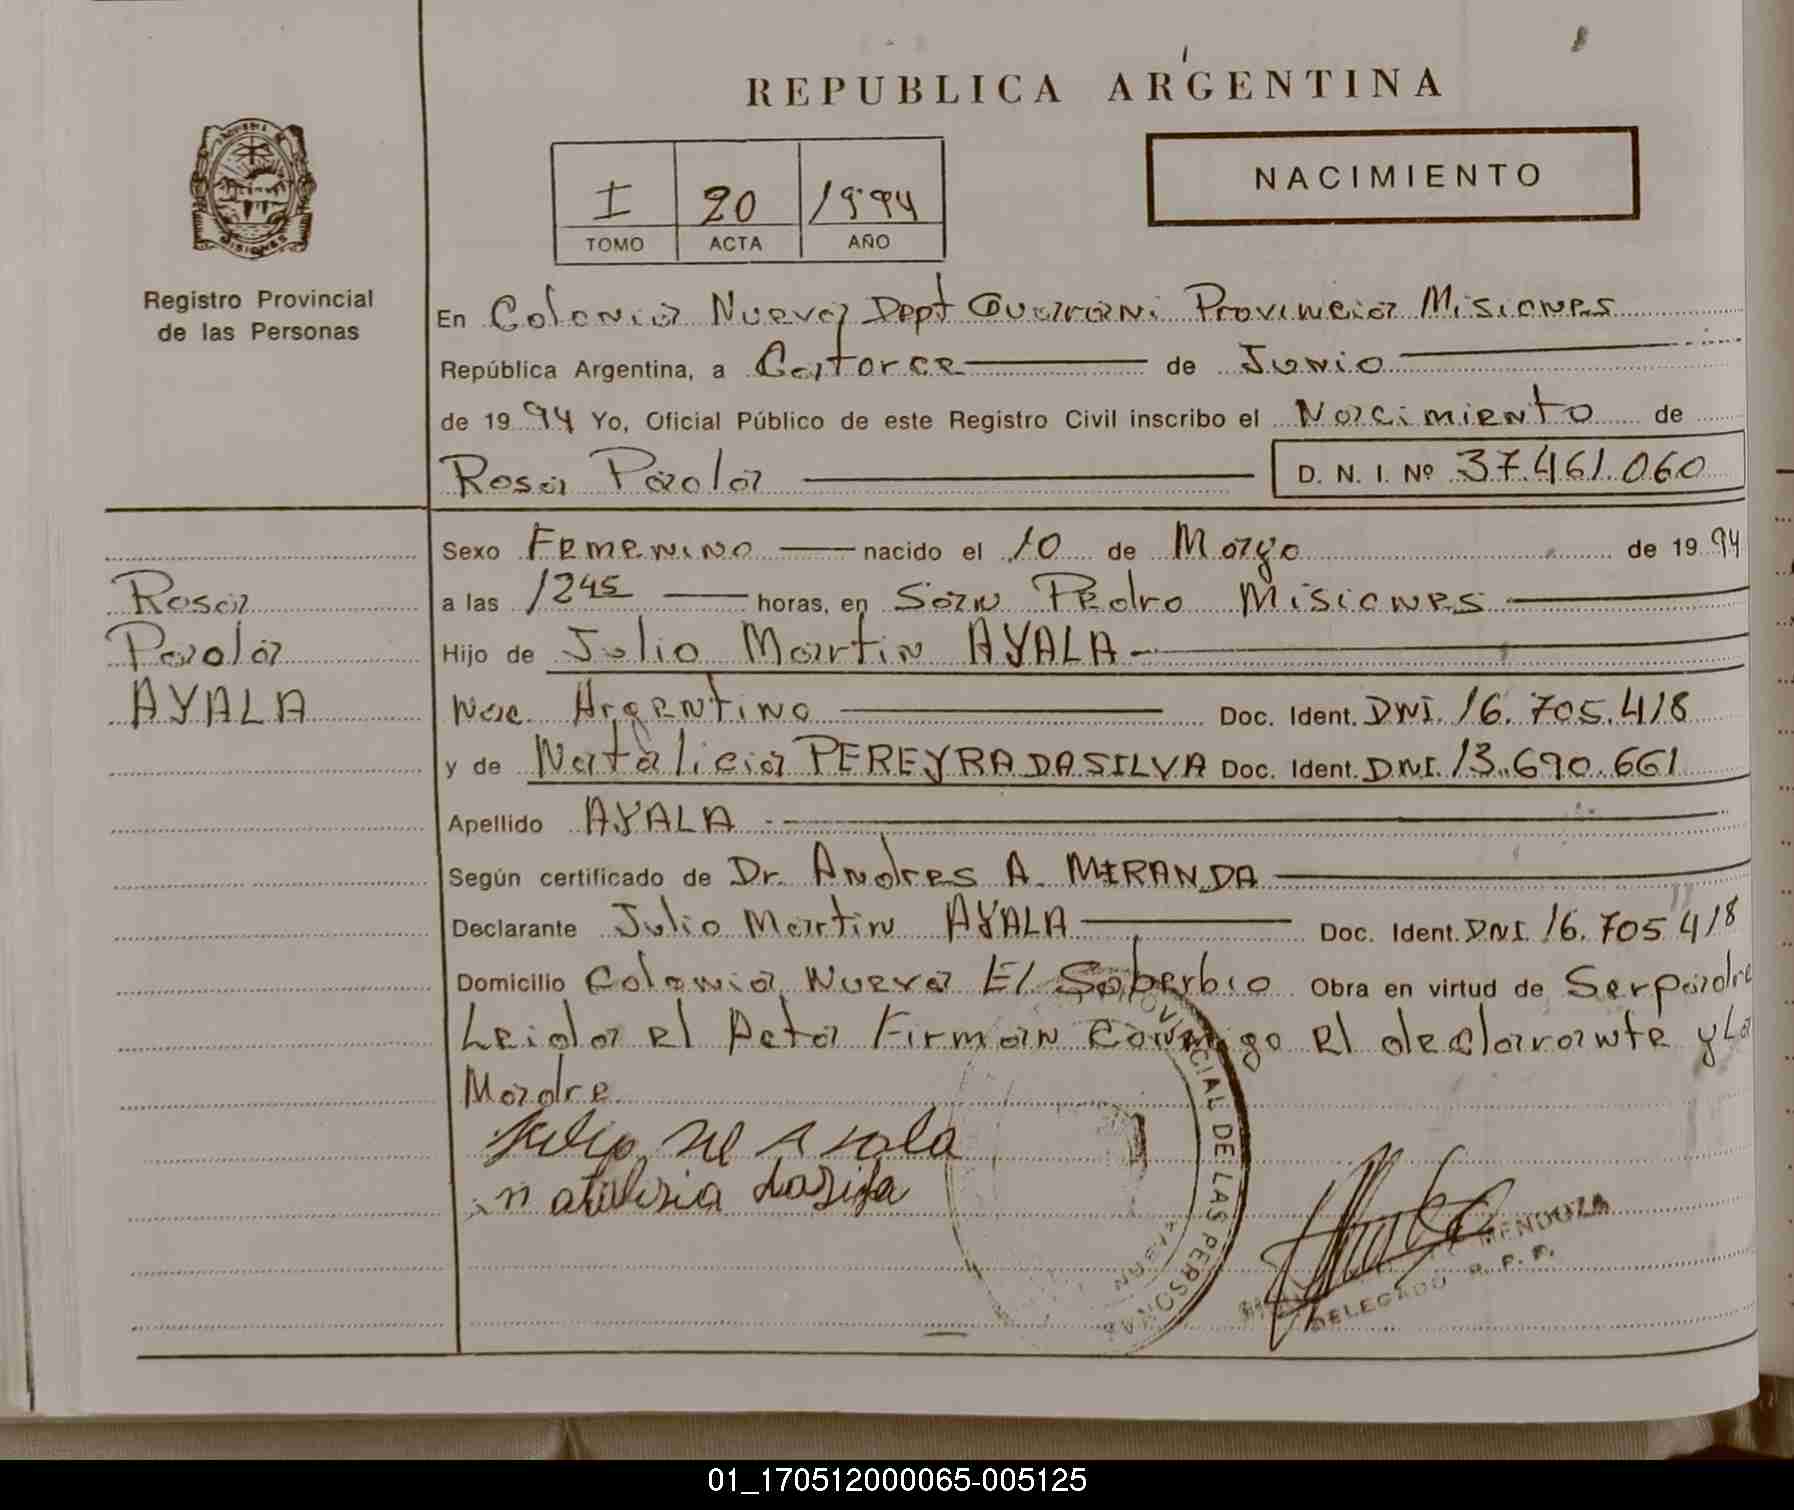 REPUBLICA ARGENTINA
NACIMIENTO
I 20 1994
TOMO ACTA AÑO
MISIONES
Registro Provincial
de las Personas
En Colonia Nueva Dept Guarani Provincia Misiones
República Argentina, a Catorce de Junio
de 1994 Yo, Oficial Público de este Registro Civil inscribo el Nacimiento de
Rosa Paola D. N. I. Nº 37.461.060
Sexo Femenino nacido el 10 de Mayo de 1994
a las 1245 horas, en San Pedro Misiones
Hijo de Julio Martin AYALA
Nac. Argentino Doc. Ident. DNI. 16.705.418
y de Natalicia PEREYRA DASILVA Doc. Ident. DNI. 13.690.661
Apellido AYALA
Según certificado de Dr. Andres A. MIRANDA
Declarante Julio Martin AYALA Doc. Ident. DNI 16.705 418
Domicilio Colonia Nueva El Soberbio Obra en virtud de Ser padre
Leida el Acta Firman Conmigo el declarante y La
Madre.
Rosa
Paola
AYALA
PROVINCIAL DE LAS PERSONAS
MENDOZA
DELEGADO R. P. P.
01_170512000065-005125